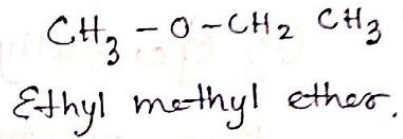 CH₃ - O - CH₂ CH₃
Ethyl methyl ether.